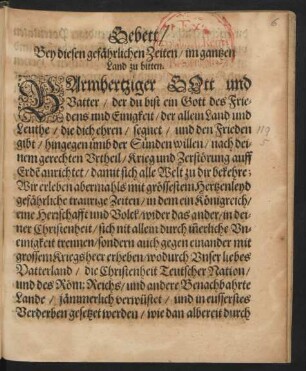 Gebett /
Bey diesen gefährlichen Zeiten / im gantzen
Land zu bitten.
BArmhertziger GOtt und
Vatter / der du bist ein Gott des Frie-
dens und Einigkeit / der allein Land und
Leuthe / die dich ehren / segnet / und den Frieden
gibt / hingegen ümb der Sünden willen / nach dei-
nem gerechten Urtheil / Krieg und Zerstörung auff
Erdē anrichtet / damit sich alle Welt zu dir bekehre:
Wir erleben abermahls mit grössestem Hertzenleyd
gefährliche traurige Zeiten / in dem ein Königreich /
eine Herrschafft und Volck / wider das ander / in dei-
ner Christenheit / sich mit allein durch iñerliche Vn-
einigkeit trennen / sondern auch gegen einander mit
grossem Kriegsheer erheben / wodurch Vnser liebes
Vatterland / die Christenheit Teutscher Nation /
und des Röm: Reichs / und andere Benachbahrte
Lande / jämmerlich verwüstet / und in eusserstes
Verderben gesetzet werden / wie dan albereit durch